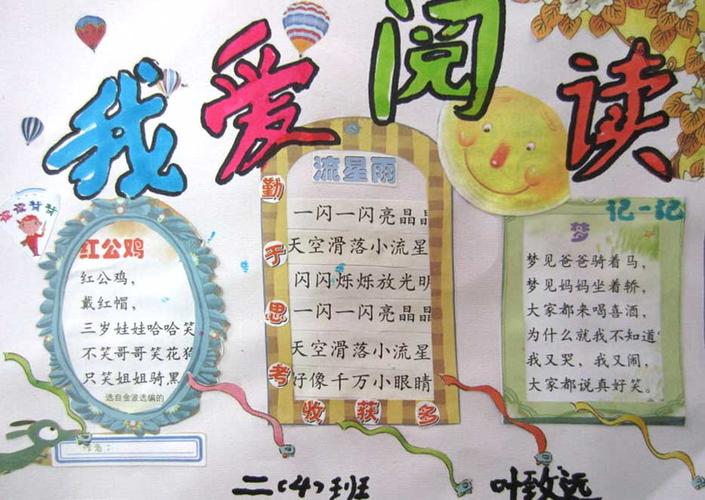 我爱阅读
红公鸡
红公鸡，
戴红帽，
三岁娃娃哈哈笑
不笑哥哥笑花狗
只笑姐姐骑黑
选自金波选编的
流星雨
一闪一闪亮晶晶
天空滑落小流星
闪闪烁烁放光明
一闪一闪亮晶晶
天空滑落小流星
好像千万小眼睛
勤于思考
收获多
记一记
梦
梦见爸爸骑着马，
梦见妈妈坐着轿，
大家都来喝喜酒，
为什么就我不知道
我又哭，我又闹，
大家都说真好笑。
二（4）班
叶致远